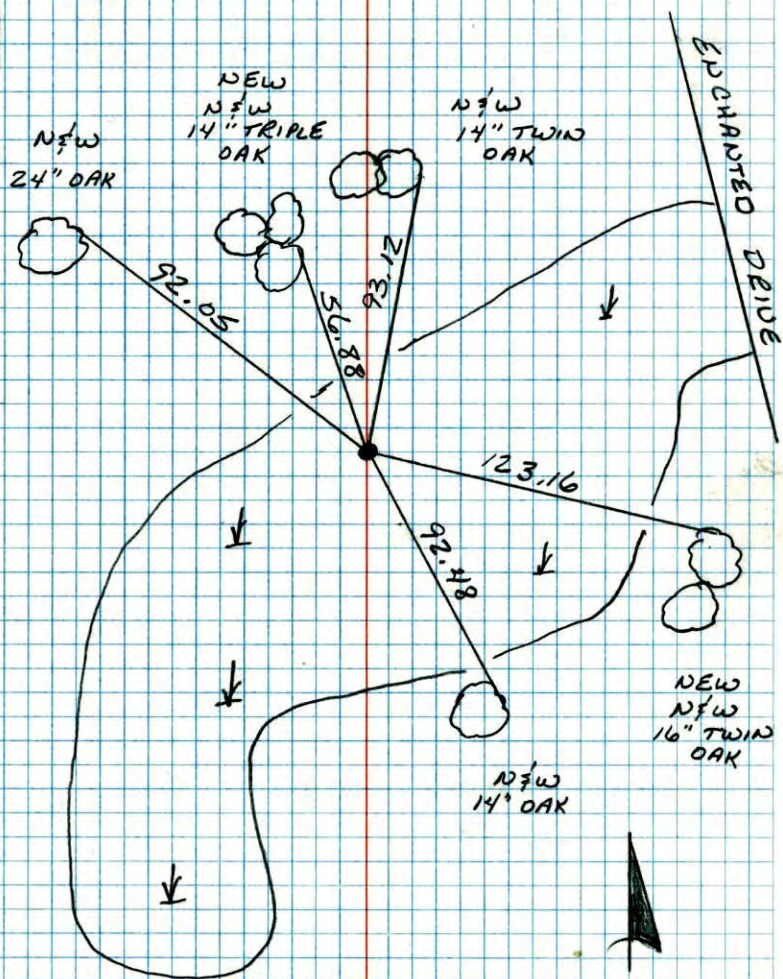 N&W
24" OAK
NEW
N&W
14" TRIPLE
OAK
N&W
14" TWIN
OAK
ENCHANTED DRIVE
92.05
56.88
93.12
123.16
92.48
NEW
N&W
16" TWIN
OAK
N&W
14" OAK